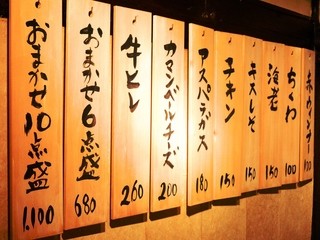 おまかせ10点盛
1.100
おまかせ6点盛
680
牛ヒレ
260
カマンベールチーズ
200
アスパラガス
180
チキン
150
キスしそ
150
海老
150
ちくわ
100
赤ウインナー
100